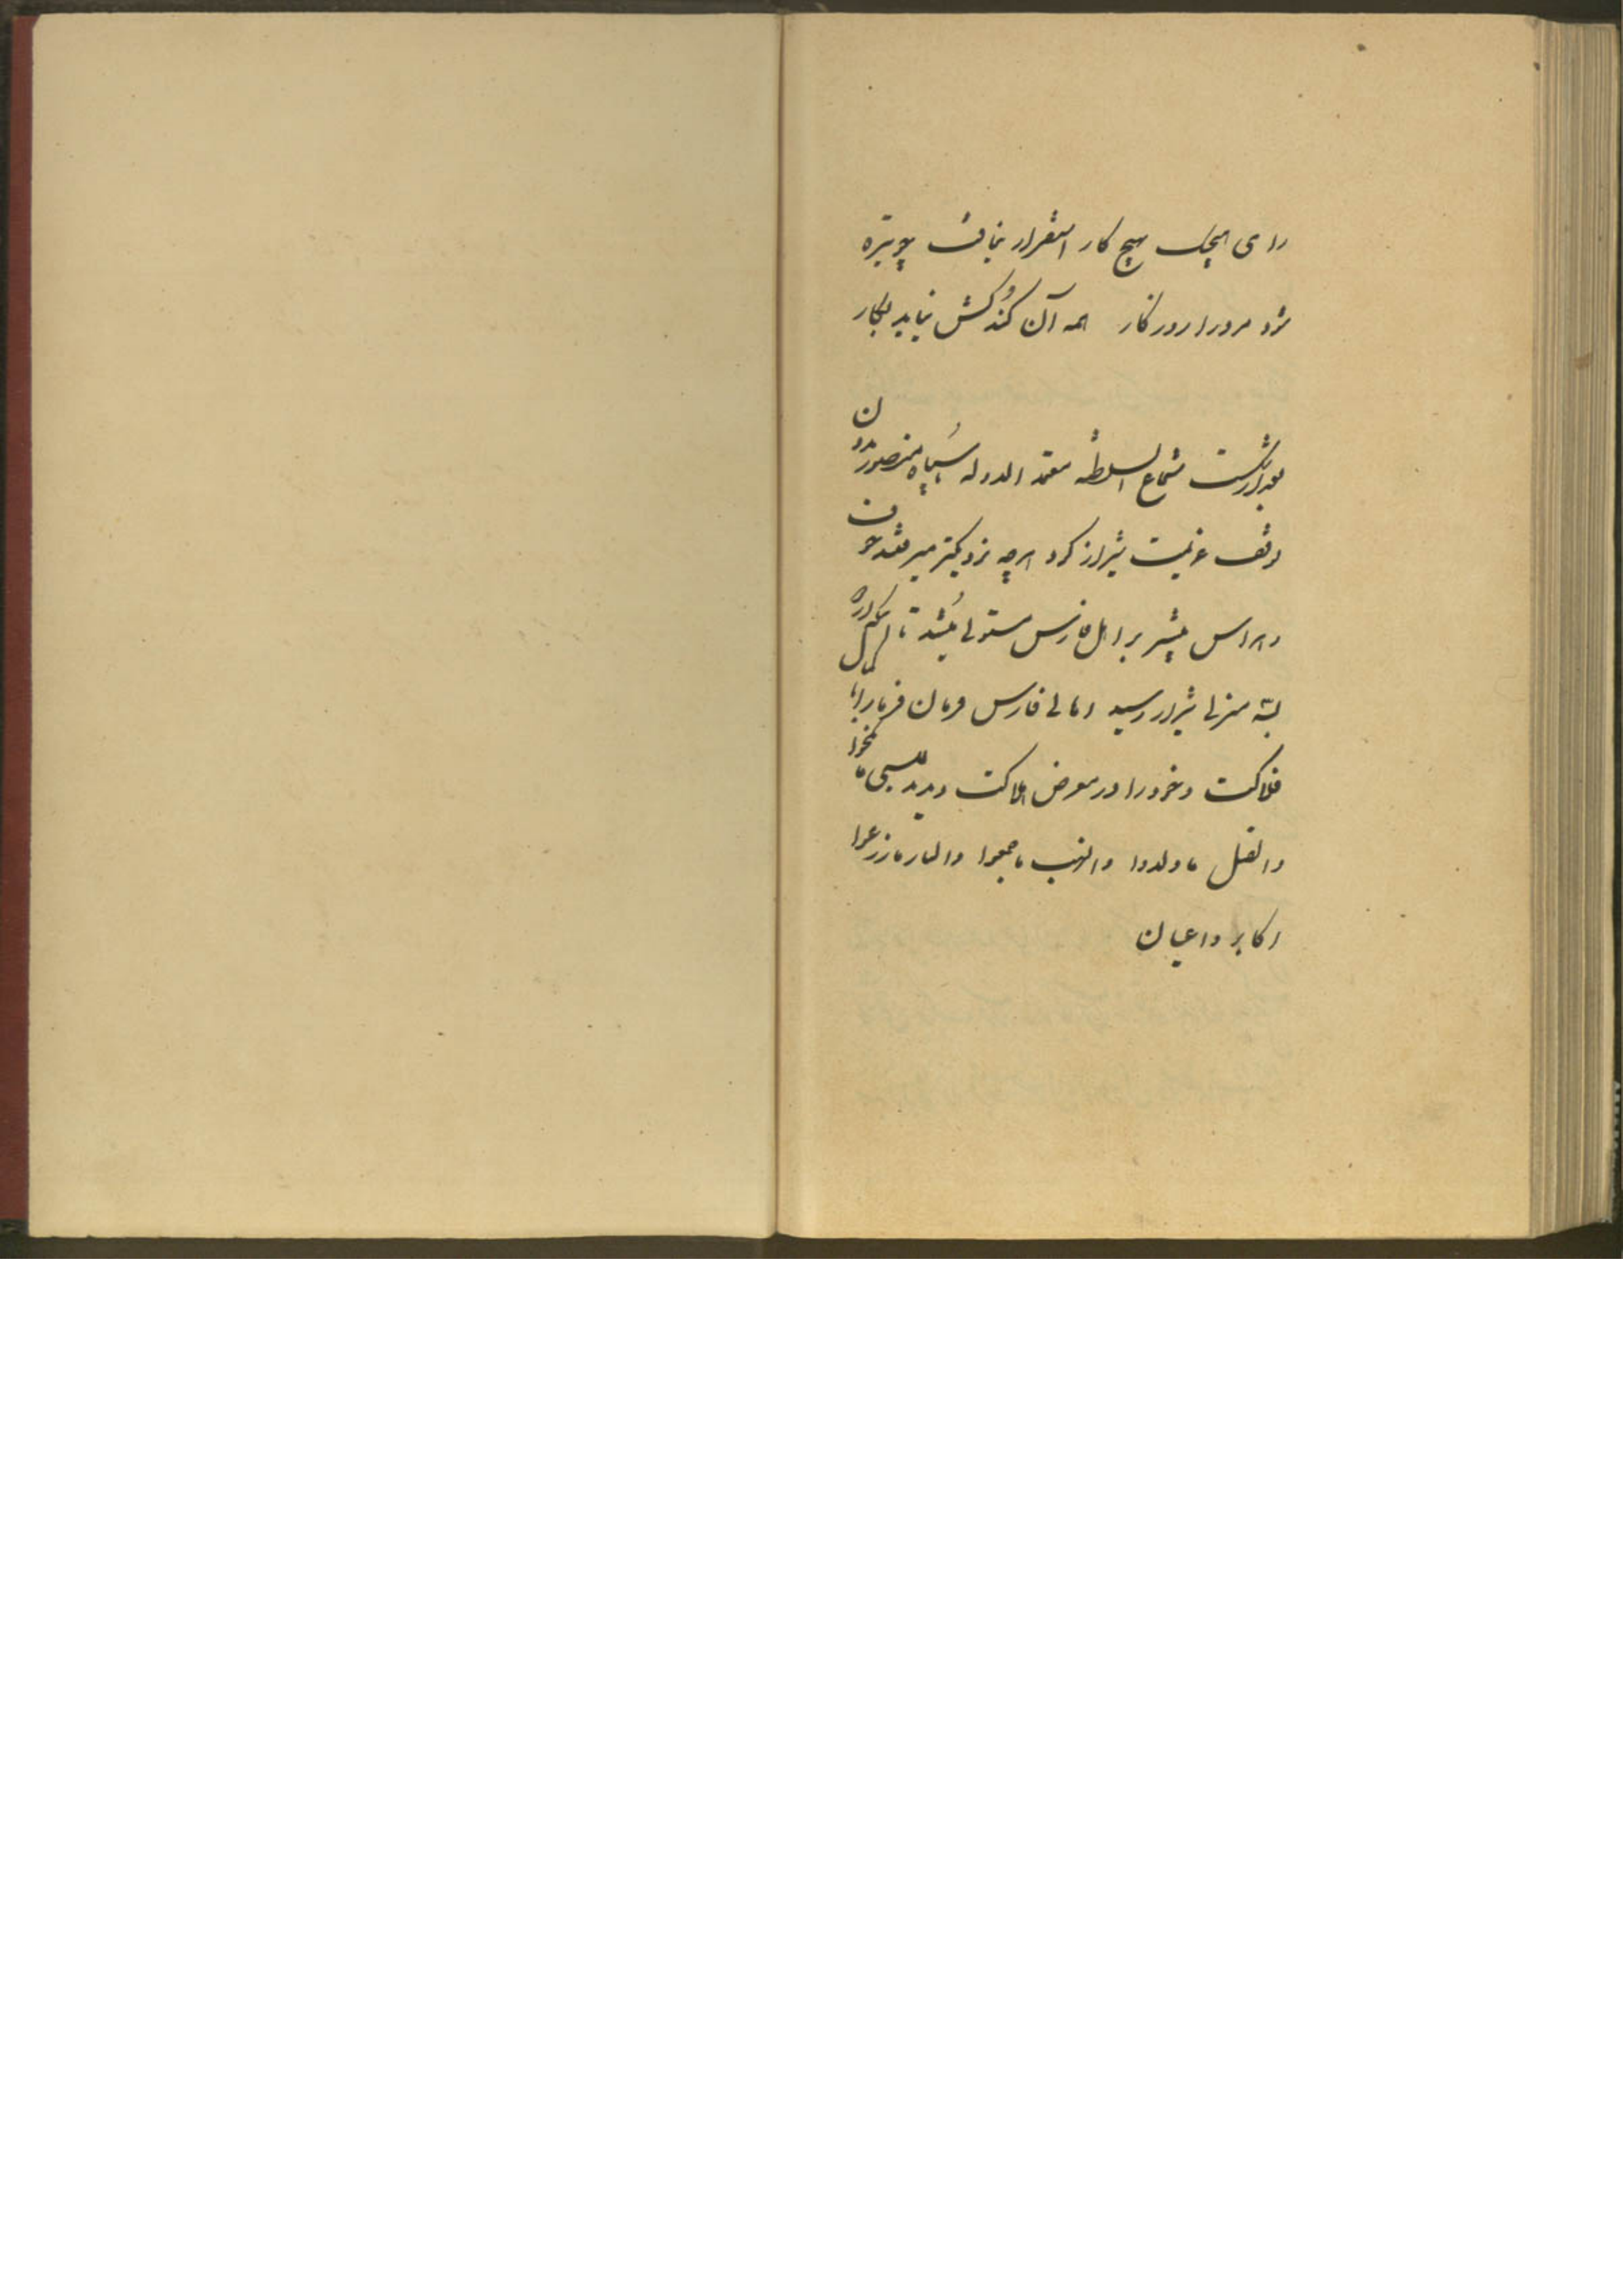 رای هیچیک بهیچ کار استقرار نیافت چو تیره
شود مرد را روزگار همه آن کُند کش نیاید بکار
بعد از شکست شجاع السلطنه معتمد الدوله با سپاه منصور بدون
وقف عزیمت شیراز کرد هر چه نزدیکتر میرفتند خوف
و هراس بیشتر بر اهل فارس مستولی میشد تا
منزلی شیراز رسید اهالی فارس فرمان فرما را با
فلاکت و خود را در معرض هلاکت دیدند للسبی ما نکحوا
والقتل ما ولدوا والنهب ما جمعوا والنار ما زرعوا
اکابر و اعیان